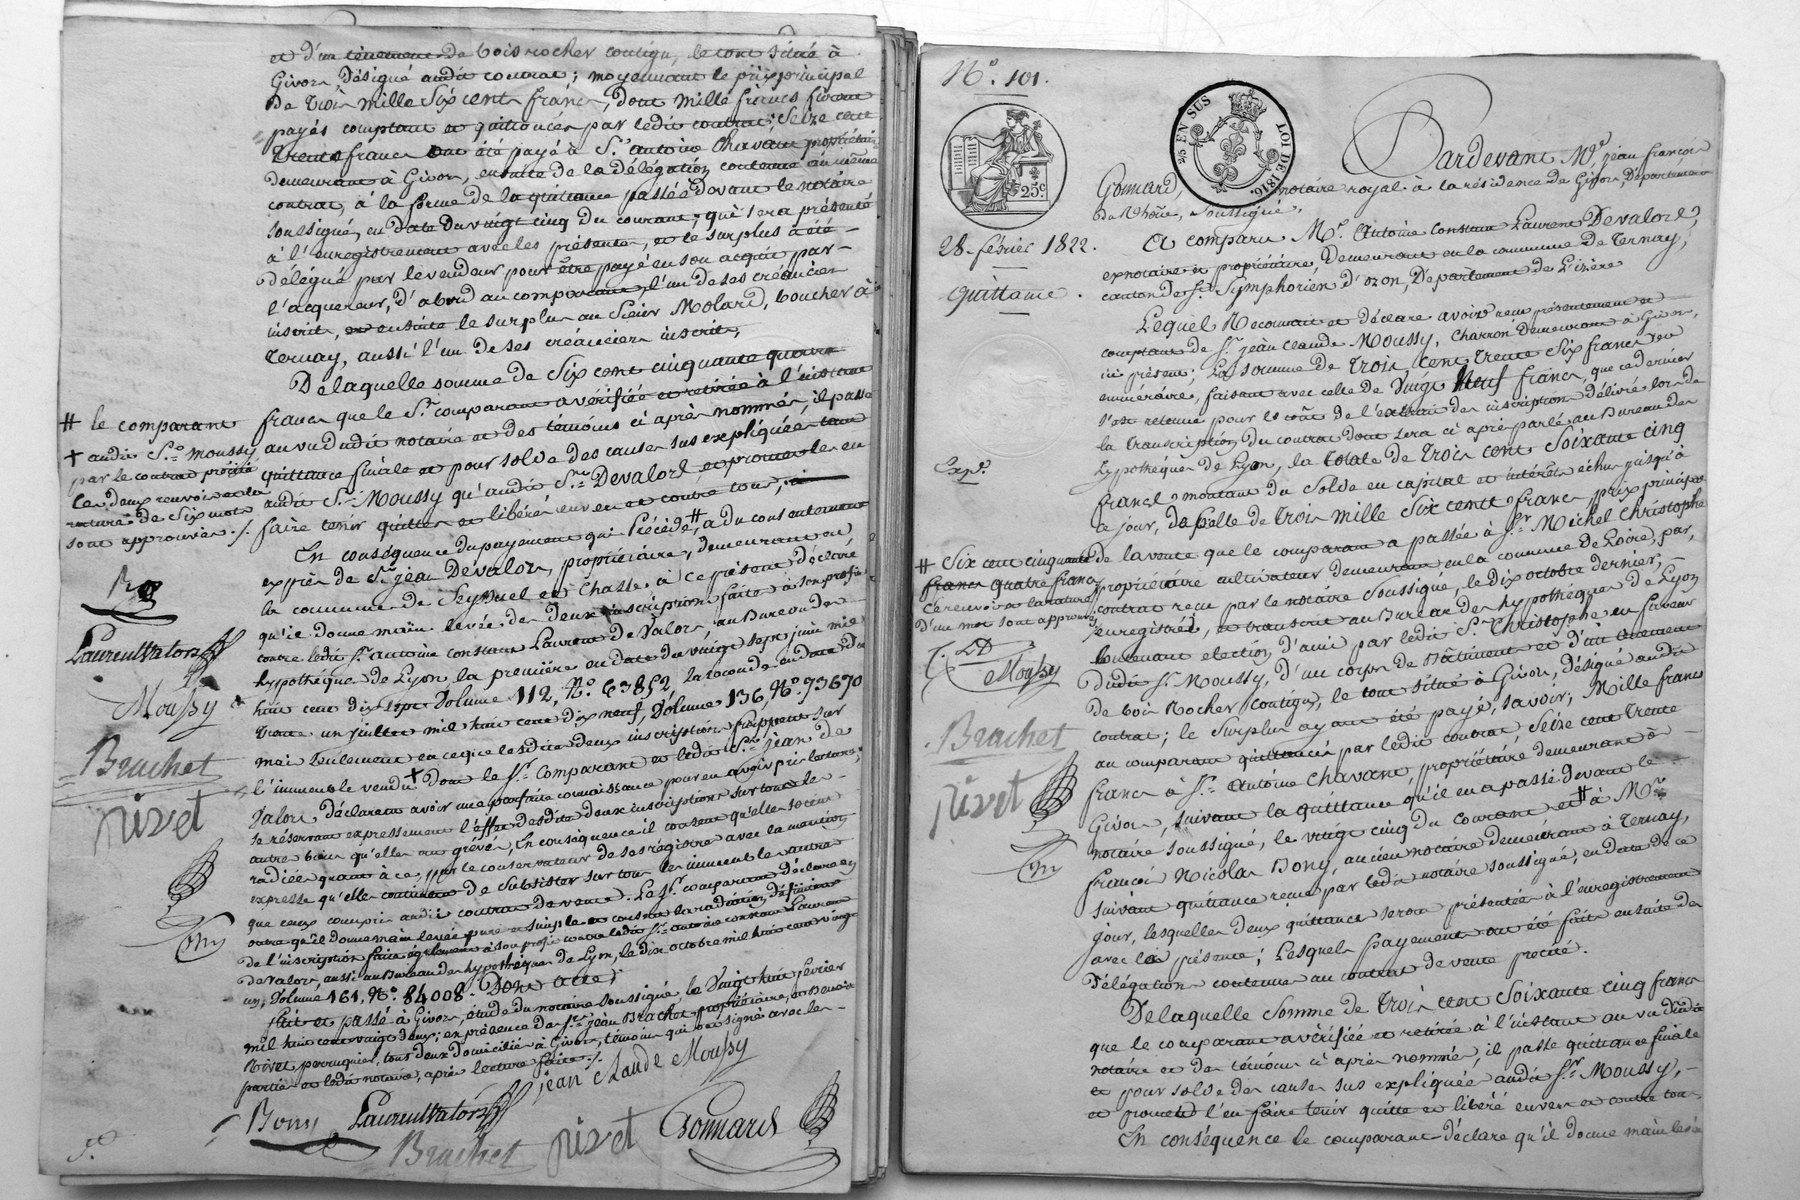 et d'un tènement de bois rocher contigu, le tout situé à
Givors désigné audit contrat; moyennant le prix principal
de trois mille six cents francs, dont mille francs furent
payés comptant et quittancés par ledit contrat; seize cent
trente francs ont été payé à Sr. antoine Chavant propriétaire
demeurant à Givors, ensuite de la délégation contenue au même
contrat, à la forme de la quittance passée devant le notaire
soussigné, en date du vingt cinq du courant, qui sera présenté
à l'enregistrement avec les présentes, et le surplus a été
délégué par le vendeur pour être payé en son acquit par
l'acquereur, d'abord au comparant, l'un de ses créanciers
inscrit, et ensuite le surplus au Sieur Molard, boucher à
Ternay, aussi l'un de ses créanciers inscrits,
De laquelle somme de six cent cinquante quatre
francs que le Sr. comparant a vérifiée et retirée à l'instant
au vu dudit notaire et des témoins ci après nommés, il passe
quittance finale et pour solde des causes sus expliquées tant
audit Sr. Moussy qu'audit Sr. Devalors, et promet les en
faire tenir quittes et libérés envers et contre tous,
En conséquence du payement qui précède, # a du consentement
exprès de Sr. jean Devalors, propriétaire, demeurant en
la commune de Seyssuel et Chasse, à ce présent déclaré
qu'il donne main levée des deux inscriptions faites à son profit
contre ledit Sr. antoine constans Laurent de Valors, au Bureau des
hypothèques de Lyon, la première en date du vingt sept juin mil
huit cent dix sept Volume 112, N°. 63852, la seconde en date du
trente un juillet mil huit cent dix neuf, Volume 136, N°. 73670
mais seulement en ce que lesdites deux inscriptions frappent sur
l'immeuble vendu + dont le Sr. comparant et ledit Sr. jean de
Valors déclarent avoir une parfaite connaissance pour en avoir pris lecture;
se réservant expressement l'effet desdites deux inscriptions sur tous les
autres biens qu'elles ont grévés, En conséquence il consent qu'elles soient
radiées quant à ce, par le conservateur de ses registres avec la mention
expresse qu'elles continuent de subsister sur tous les immeubles autres
que ceux compris audit contrat de vente. Le Sr. comparant déclare en
outre qu'il donne main levée pure et simple et consent la radiation définitive
de l'inscription faite également à son profit contre ledit Sr. antoine constans Laurent
de Valors, aussi au Bureau des hypothèques de Lyon, le dix octobre mil huit cent vingt
un, Volume 161, N°. 84008. Dont acte;
fait et passé à Givors, étude du notaire soussigné, le vingt huit février
mil huit cent vingt deux; en présence de Srs. jean Brachet propriétaire, et Benoit
Rivet perruquier, tous deux domiciliés à Givors, témoins qui ont signés avec les
parties et ledit notaire, après lecture faite ./.
jean claude Moussy
Bony Laurent Valors
Brachet rivet Gonnard
# le comparant
+ audit Sr. Moussy
par le contrat précité
Ces deux renvois et la
rature de six mots
sont approuvés ./.
Laurent Valors
Moussy
Brachet
rivet
N°. 101.
25 EN SUS LOI DE 1816.
25c.
28. février 1822.
Quittance.
Expé.
Pardevant Me. jean françois
Gonnard, notaire royal à la résidence de Givors, Département
du Rhône, soussigné,
A comparu Mr. Antoine Constans Laurent Devalors,
exnotaire et propriétaire, demeurant en la commune de Ternay,
canton de St. Symphorien d'ozon, Département de l'izère
Lequel reconnait et déclare avoir reçu présentement et
comptant de Sr. jean claude Moussy, charron demeurant à Givors,
ici présent, la somme de trois cent trente six francs en
numéraire, faisant avec celle de vingt neuf francs, que ce dernier
s'est retenue pour le coût de l'extrait des inscriptions délivré lors de
la transcription du contrat dont sera ci après parlé, au Bureau des
hypothèques de Lyon, la totale de trois cent soixante cinq
francs, montant du solde en capital et intérêts échus jusqu'à
ce jour, de celle de trois mille six cents francs prix principal
de la vente que le comparant a passée à Sr. Michel Christophe
propriétaire cultivateur demeurant en la commune de Loire, par
contrat reçu par le notaire soussigné, le dix octobre dernier,
enregistré, et transcrit au Bureau des hypothèques de Lyon
contenant election d'ami par ledit Sr. Christophe en faveur
dudit Sr. Moussy, d'un corps de bâtiments et d'un tènement
de bois Rocher contigus, le tout situé à Givors, désigné audit
contrat; le surplus ayant été payé, savoir; Mille francs
au comparant quittancés par ledit contrat, seize cent trente
francs à Sr. Antoine Chavant, propriétaire demeurant à
Givors, suivant la quittance qu'il en a passé devant le
notaire soussigné, le vingt cinq du courant et # à Mr.
françois Nicolas Bony, ancien notaire demeurant à Ternay,
suivant quittance reçue par ledit notaire soussigné, en date de ce
jour, lesquelles deux quittances seront présentées à l'enregistrement
avec la présente; Lesquels payements ont été faits ensuite des
délégations contenues au contrat de vente précité.
De laquelle somme de trois cent soixante cinq francs
que le comparant a vérifiée et retirée à l'instant au vu dudit
notaire et des témoins ci après nommés, il passe quittance finale
et pour solde des causes sus expliquées audit Sr. Moussy,
et promet l'en faire tenir quitte et libéré envers et contre tous
En conséquence le comparant déclare qu'il donne main levée
# Six cent cinquante
francs quatre francs
Ce renvoi et la rature
d'un mot sont approuvés
./. LD
Moussy
Brachet
rivet